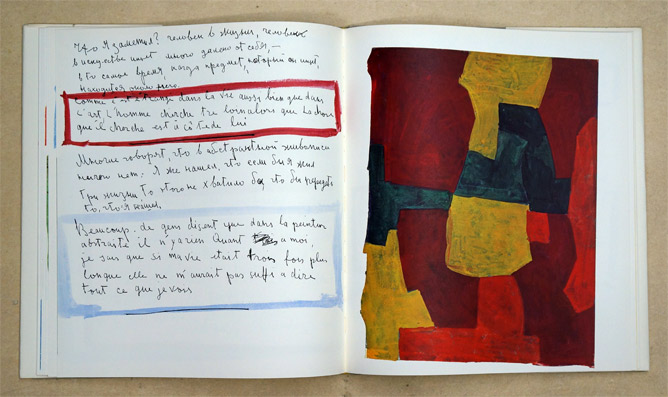 Что я заметил? человек в жизни, человек
в искусстве ищет много далеко от себя, —
в то самое время, когда предмет, который он ищет,
находится около него.
comme c'est étrange dans la vie aussi bien que dans
l'art, l'homme cherche tre loin alors que la chose
que il cherche est à côté de lui
Многие говорят, что в абстрактной живописи
ничего нет. Я же нашел, что если бы я жил
три жизни то этого не хватило бы, что бы передать
то, что я
Beaucoup de gens disent que dans la peinture
abstraite il n'y a rien Quant a moi,
je sais que si ma vie etait trois fois plus
longue elle ne m'aurait pas suffi a dire
tout ce que je vois